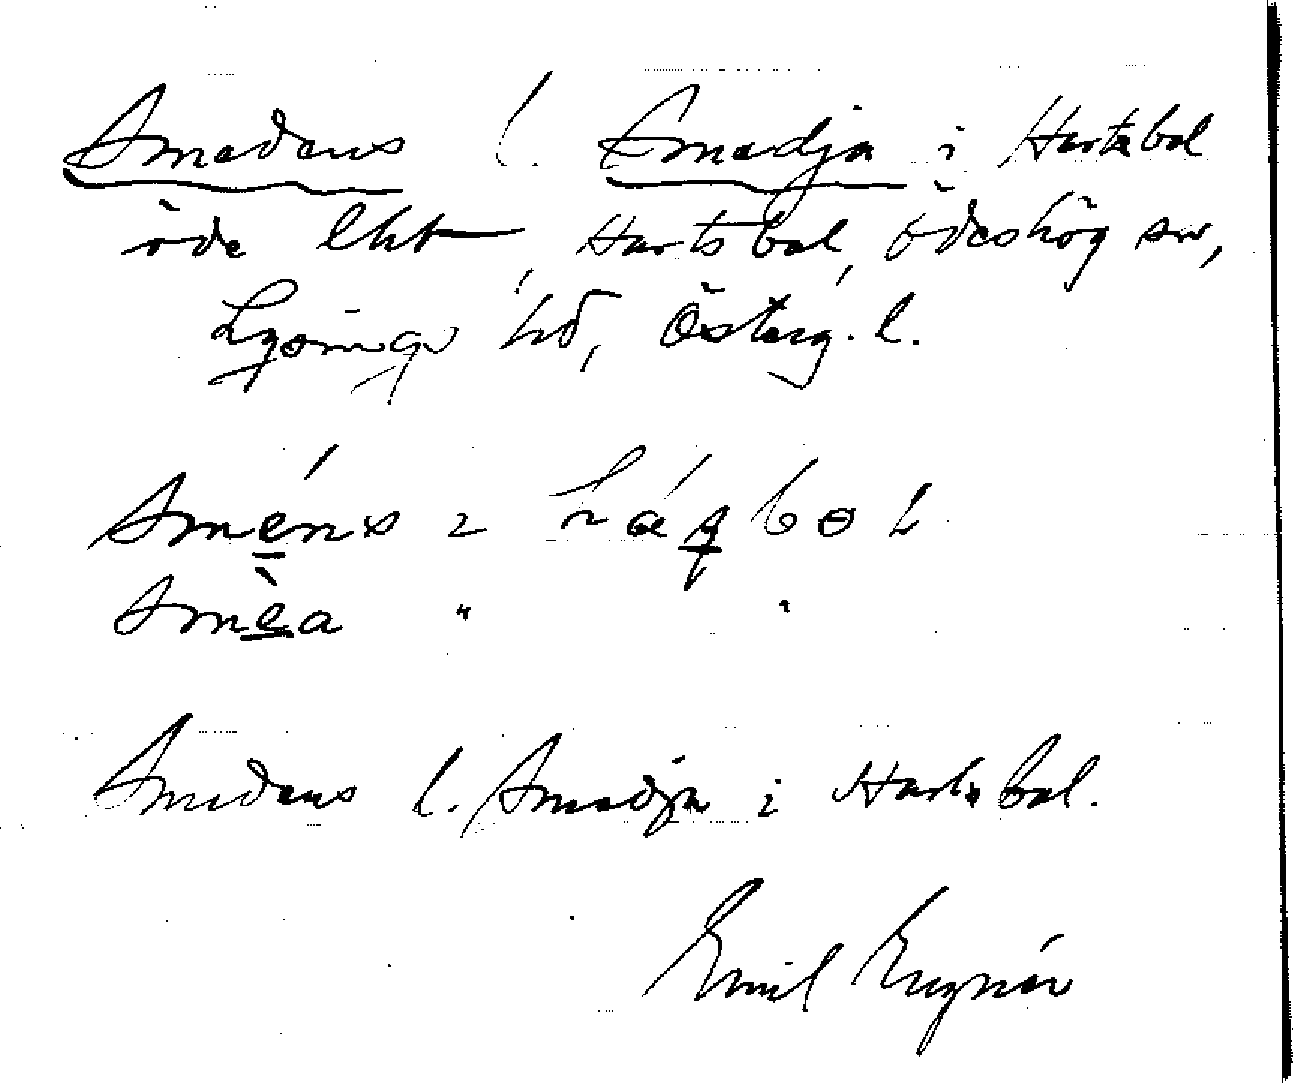 Smedens l. Smedja i Hartsbol
öde lht, Hartsbol, Ödeshög sn,
Lysings hd, Österg. l.
Sméns i
Smèa " "
Smedens l. Smedja i Hartsbol.
Emil